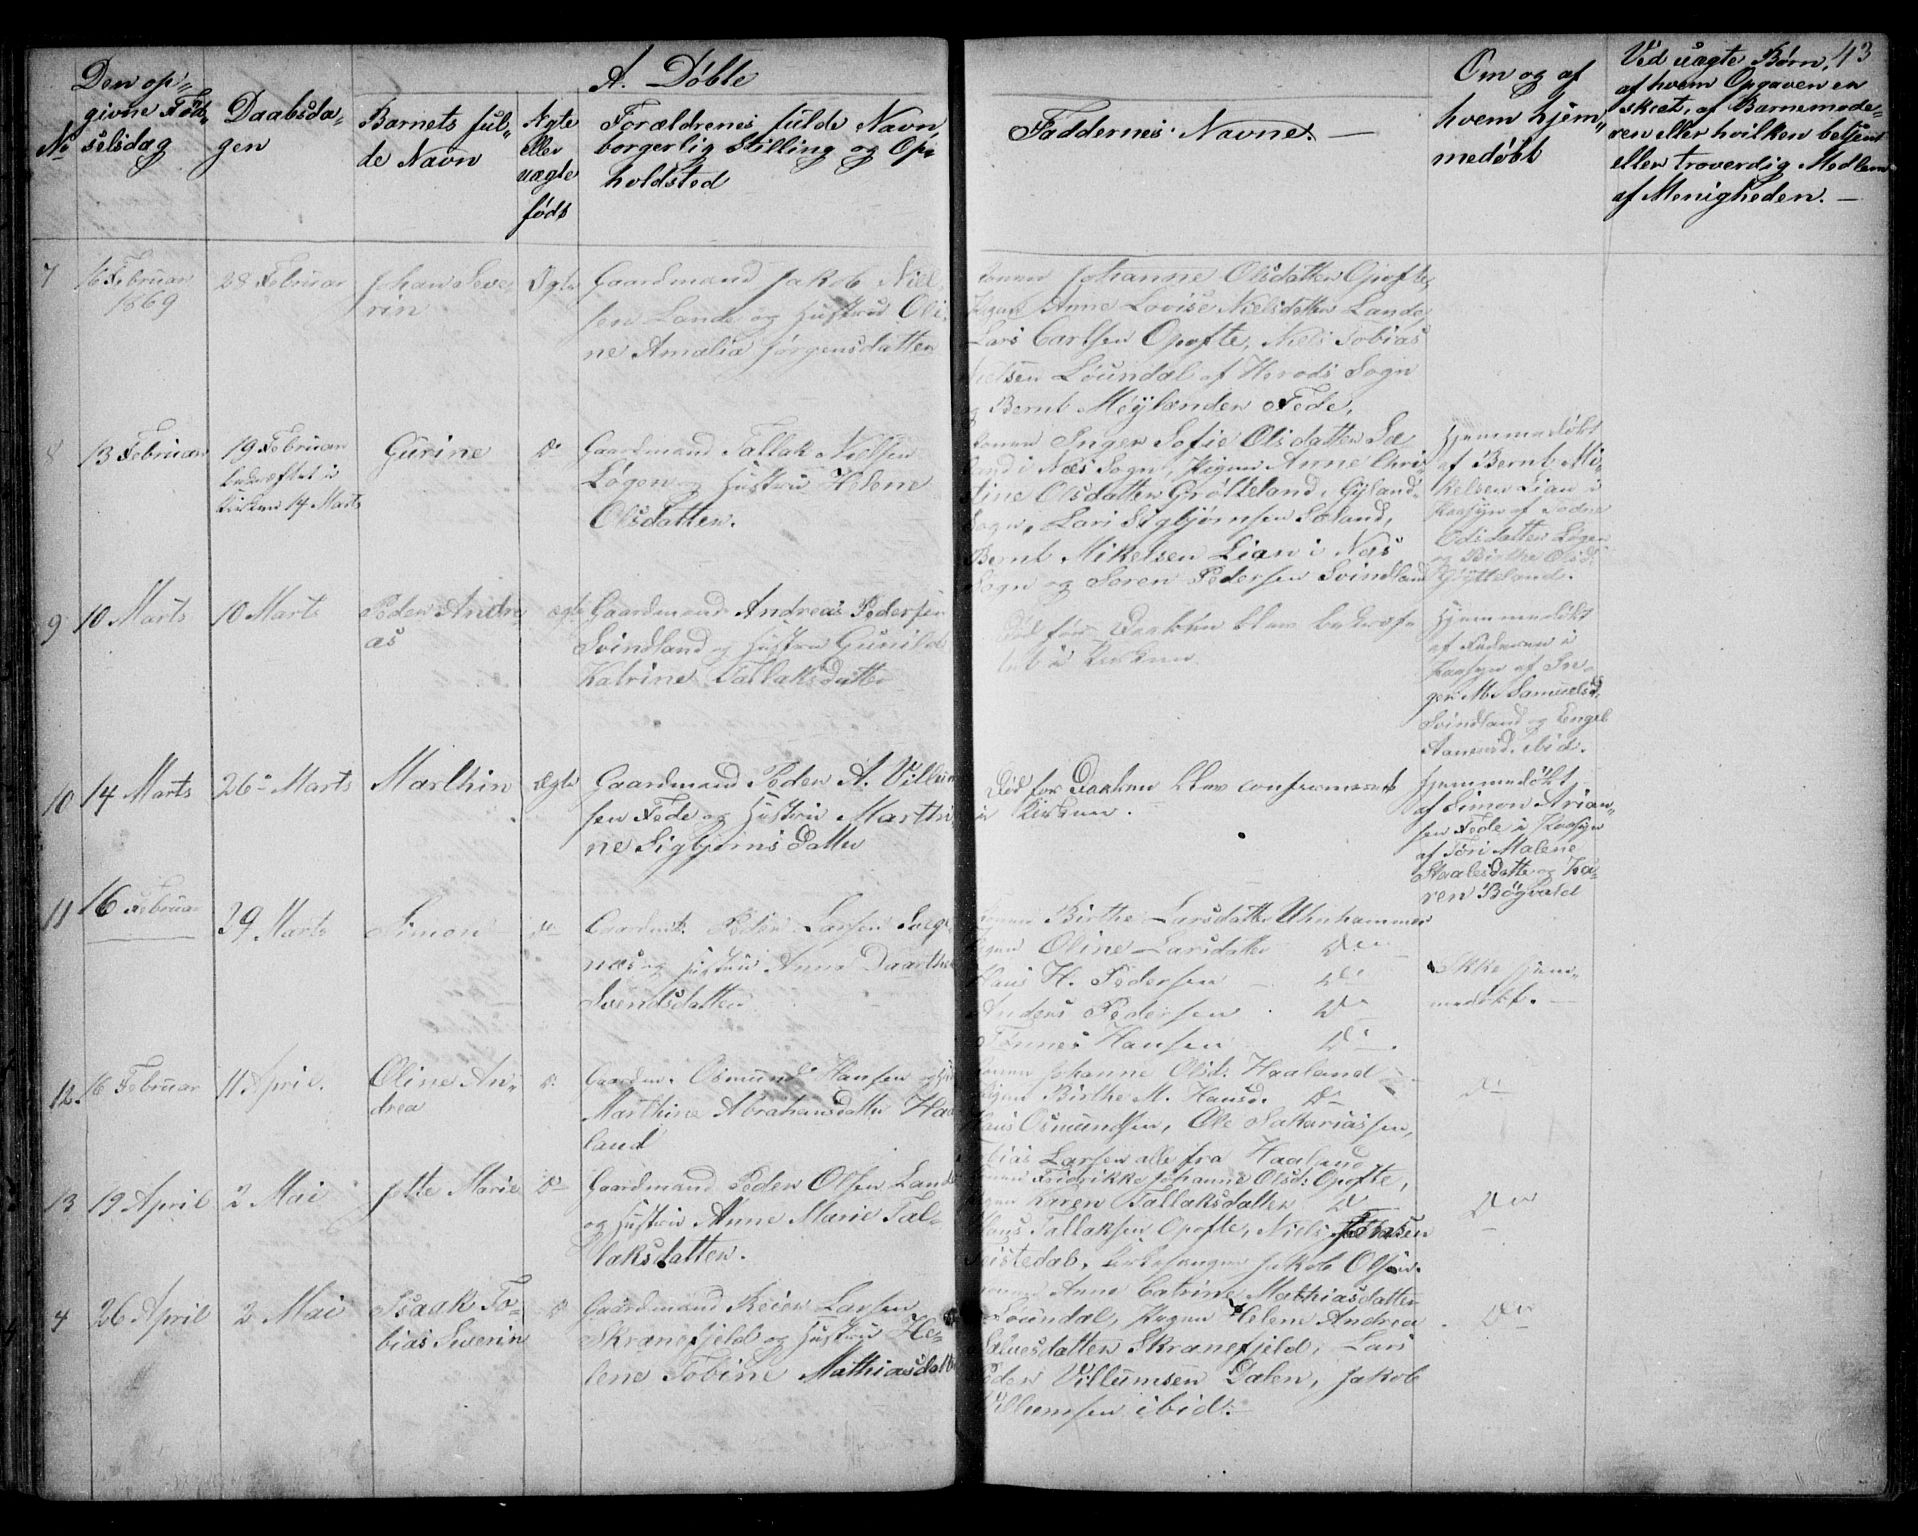 43
A. Døbte
No
Den op-
givne Föd-
selsdag
Daabsda-
gen
Barnets ful-
de Navn
Ægte
eller
uægte
født
Forældrenes fulde Navn,
borgerlig Stilling og Op-
holdsted
Faddernes Navne.
Om og af
hvem hjem-
medøbt
Ved uægte Børn,
af hvem Opgaven er
skeet, af Barnemode-
ren eller hvilken betjent
eller troverdig Medlem
af Menigheden.
7
16 Februar
1869
28 Februar
Johan Seve-
rin
Ægte
Gaardmand Jakob Niel-
sen Lande og Hustrue Oli-
ne Amalia Jørgensdatter
Konen Johanne Olsdatter Opofte,
Pigen Anne Lovise Nielsdatter Lande,
Lars Carlsen Opofte, Niels Tobias
Nielsen Löundal af Herods Sogn
og Bernt Meylænder Fede,
8
13 Februar
19 Februar
bekræftet i
Kirken 14 Marts
Gurine
Do
Gaardmand Tallak Nielsen
Løgen og Hustru Helene
Olsdatter.
Konen Inger Sofie Olsdatter Sæ-
land i Næs Sogn, Pigen Anne Chri-
tine Olsdatter Grøtteland, Gyland
Sogn, Lars Sigbjørnsen Sæland,
Bernt Mikelsen Lian i Næs
Sogn og Søren Pedersen Svindland
Hjemmedøbt
af Bernt Mi-
kelsen Lian i
Paasyn af Todne
Olsdatter Løgen
og Birthe Olsd.
Gytteland.
9
10 Marts
10 Marts
Peder Andre-
as
ægte
Gaardmand Andreas Pedersen
Svindland og Hustru Gunild
Katrine Tallaksdatter
Død før Daaben blev bekræf-
tet i Kirken
Hjemmedøbt
af Faderen i
Paasyn af In-
ger M. Samuelsd.
Svindland og Engel
Aanensd. ibid.
10
14 Marts
26 Marts
Marthin
Ægte
Gaardmand Peder A. Villum-
sen Fede og Hustru Marthi-
ne Sigbjørnsdatter
Død før Daaben blev confirmeret
i Kirken.
Hjemmedøbt
af Simon Arian-
sen Fede i Paasyn
af Töri Malene
Staalesdatte og Ka-
ren Bögvald
11
16 Februar
29 Marts
Simon
Do
Gaardmd. Peder Larsen Sæge-
næs og Hustru Anna Daarthe
Svendsdatter
Konen Birthe Larsdatter Uhnhammer
Pigen Oline Larsdatter Do
Hans H. Pedersen Do
Anders Pedersen Do
Tønnes Hansen Do
Ikke hjem-
medøbt.
12.
16 Februar
11 April.
Oline An-
drea
Do
Gaardm. Osmund Hansen og H.
Marthine Abrahamsdatter Haa-
land
Konen Johanne Olsd. Haaland
Pigen Birthe M. Hansd. Do
Hans Osmundsen, Ole Sakariassen,
Tobias Larsen alle fra Haaland
Do
13
19 April
2 Mai
Jette Marie
Do
Gaardmand Peder Olsen Lande
og Hustru Anne Marie Tal-
laksdatter.
Konen Fredrikke Johanne Olsd. Opofte,
Pigen Karen Tallaksdatter Do
Hans Tallaksen Opofte, Niels
Kirkesanger Jakob Olsen.
Do
4
26 April
2 Mai
Isaak To-
bias Severin
Do
Gaardmand Reier Larsen
Skranefjeld og Hustru He-
lene Tobine Mathiasdatter
Konen Anne Catrine Mathiasdatter
Löundal, Pigen Helene Andrea
Salvesdatter Skranefjeld, Lars
Peder Villumsen Dalen, Jakob
Villumsen ibid.
Do